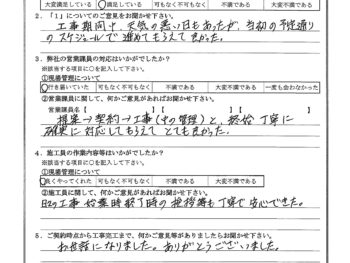 大変満足している 満足している 可もなく不可もなく 不満である 大変不満である
2．「1」についてのご意見をお聞かせ下さい。
工事期間中、天気の悪い日もあったが、当初の予定通り
のスケジュールで進めてもらえて良かった。
3．弊社の営業課員の対応はいかがでしたか？
※該当する項目に○を記入して下さい。
①現場管理について
行き届いていた 可もなく不可もなく 不満である 大変不満である 一度も会わなかった
②営業課員に関して、何かご意見があればお聞かせ下さい。
営業課員名【 】【 】【 】
提案→契約→工事(中の管理)と、終始丁寧に
確実に対応してもらえてとても良かった。
4．施工員の作業内容等はいかがでしたか？
※該当する項目に○を記入して下さい。
①現場管理について
良くやってくれた 可もなく不可もなく 不満である 大変不満である
②施工員に関して、何かご意見があればお聞かせ下さい。
日々の工事始業時終了時の挨拶等も丁寧で安心できた。
5．ご契約時点から工事完工まで、何かご意見等がありましたらお聞かせ下さい。
お世話になりました。ありがとうございました。